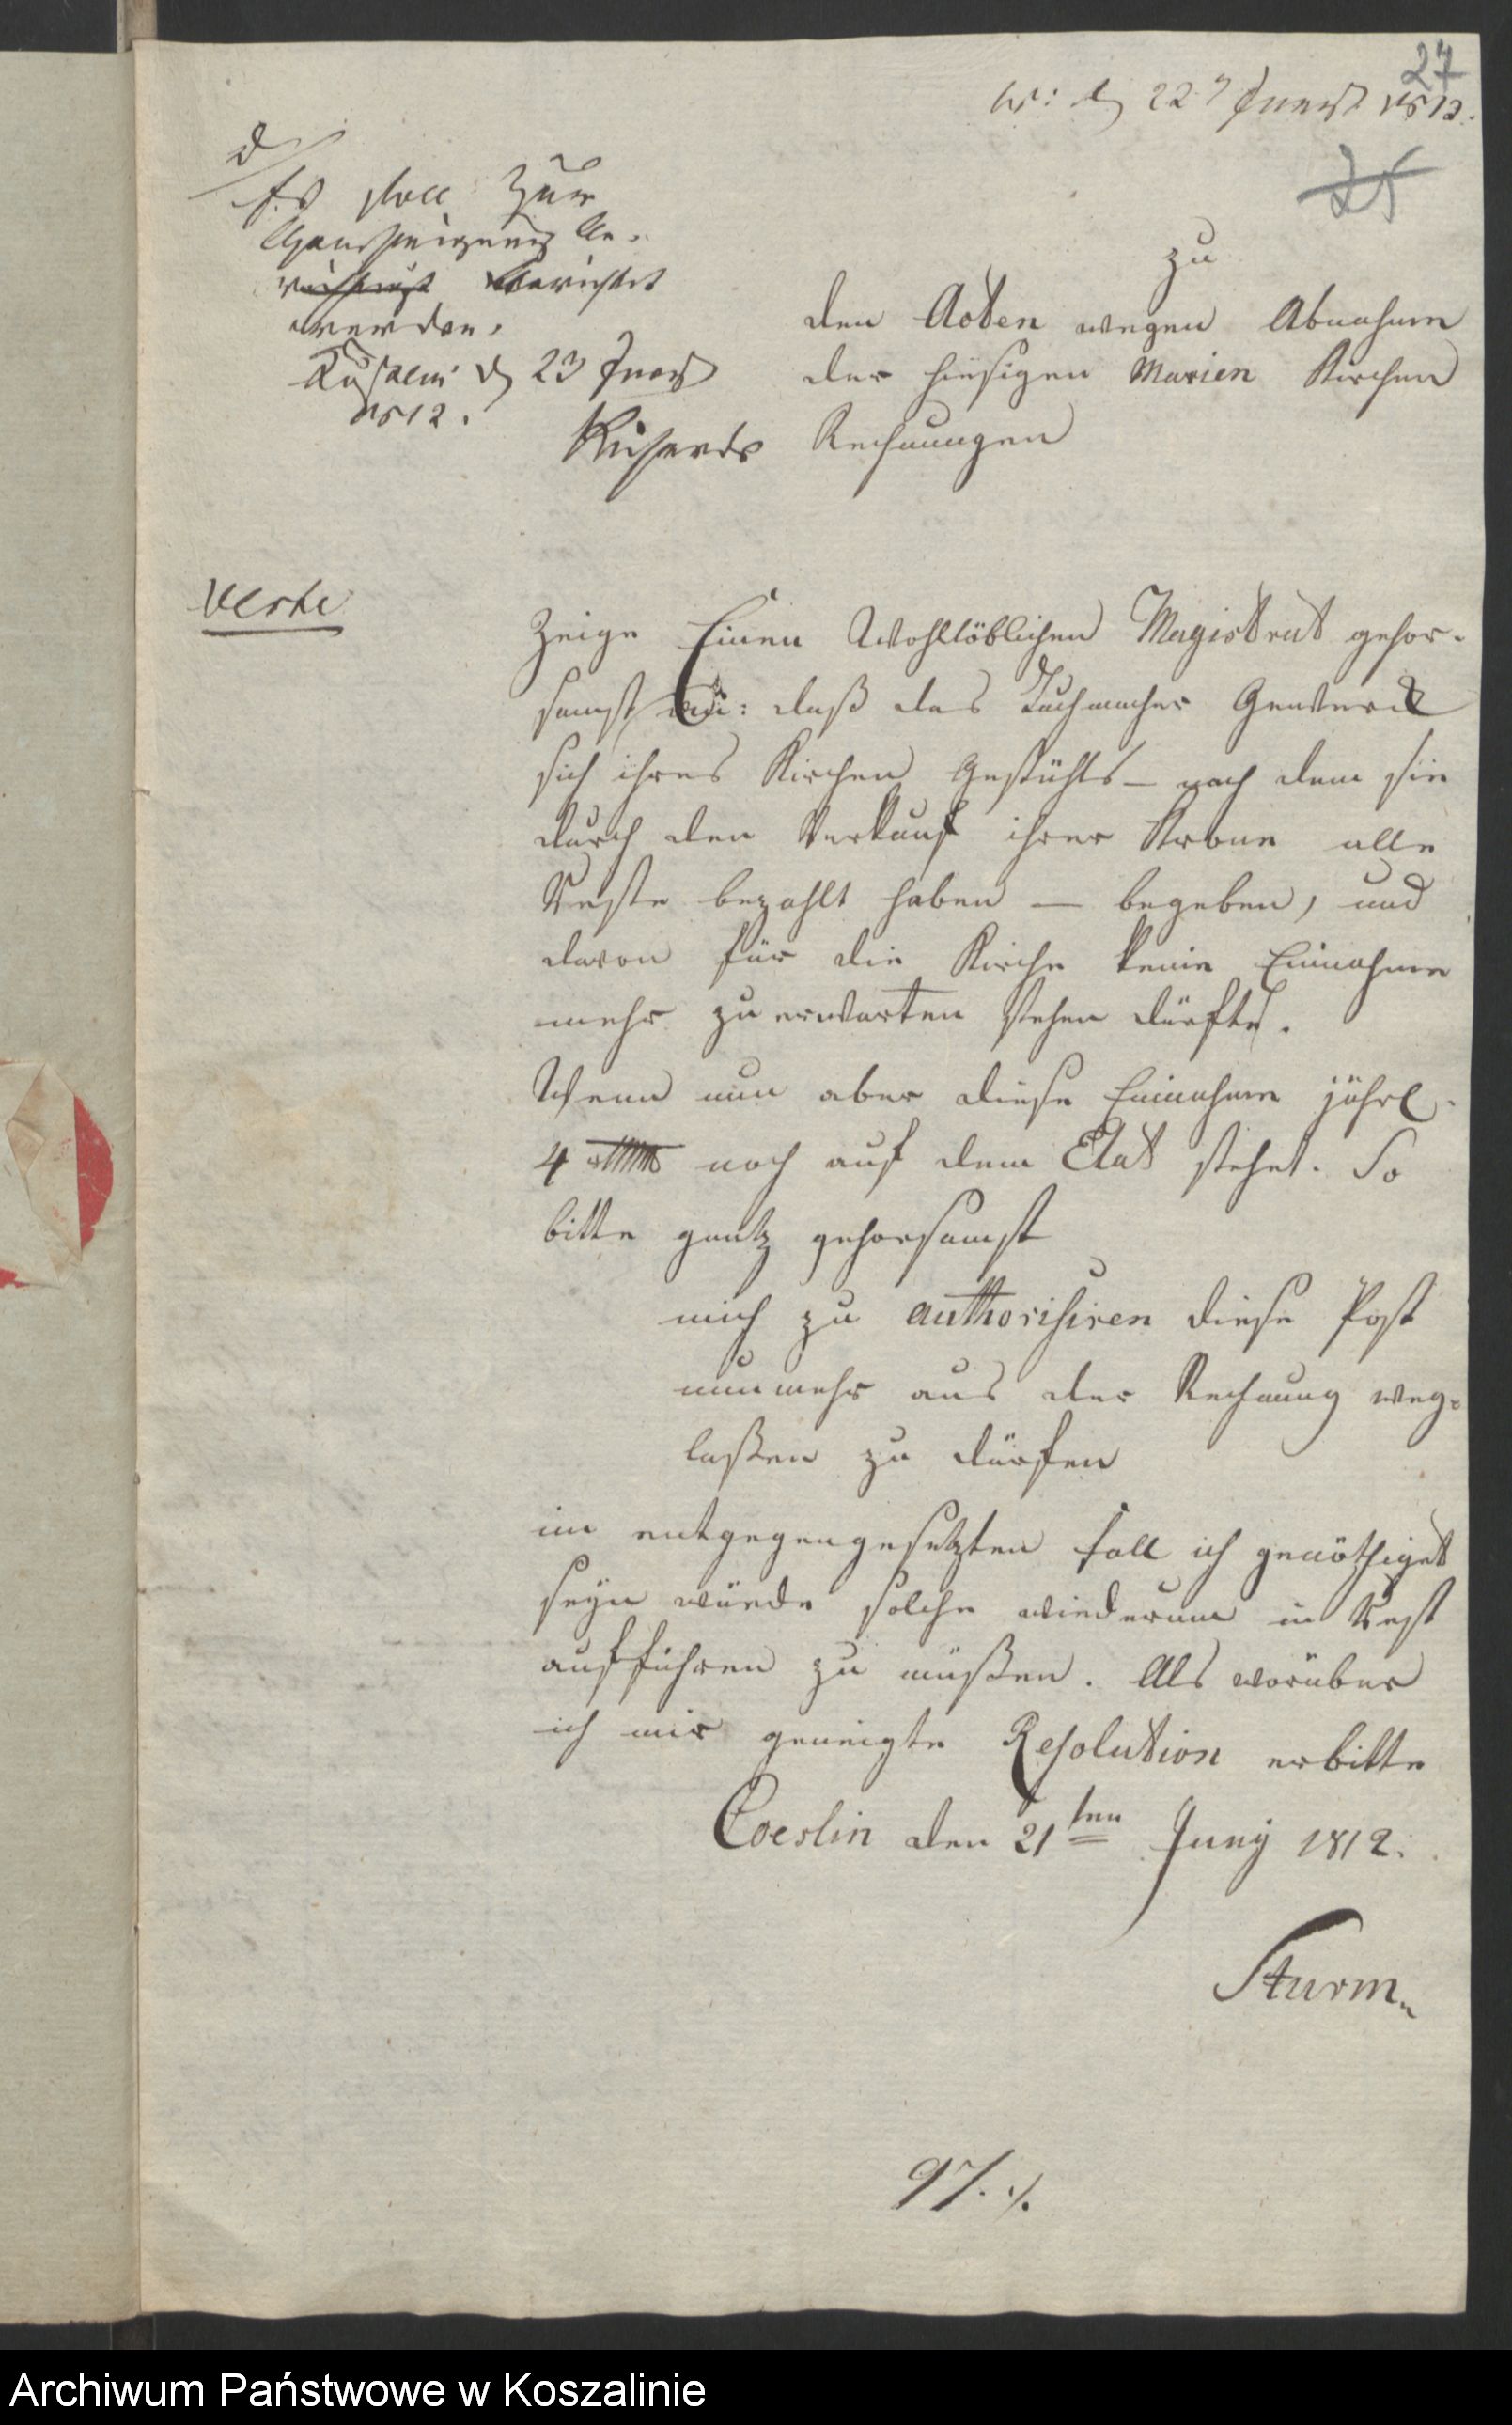 27
22 Juny 1812.
25
Es soll zur
Genehmigung be-
richtet
werden.
Cöslin d 23 Juny
1812.
zu
den Acten wegen Abnahme
der hiesigen Marien Kirchen
Rechnungen
Verte
Zeige Einen Wohllöblichen Magistrat gehor-
samst an: daß das Tuchmacher Gewerck
sich ihres Kirchen Gestühls - nach dem sie
durch den Verkauf ihrer Krone alle
Reste bezahlt haben — begeben, und
davon für die Kirche keine Einnahme
mehr zu erwarten stehen dürfte.
Wenn nun aber diese Einnahme jährl.
4 noch auf dem Etat stehet. So
bitte gantz gehorsamst
mich zu authorisiren diese Post
nunmehr aus der Rechnung weg-
laßen zu dürfen
im entgegengesetzten Fall ich genöthiget
seyn würde solche wiederum in Rest
aufführen zu müßen. Als worüber
ich mir geneigte Resolution erbitte
Coeslin den 21ten Juny 1812.
Sturm
97. ./.
Archiwum Państwowe w Koszalinie